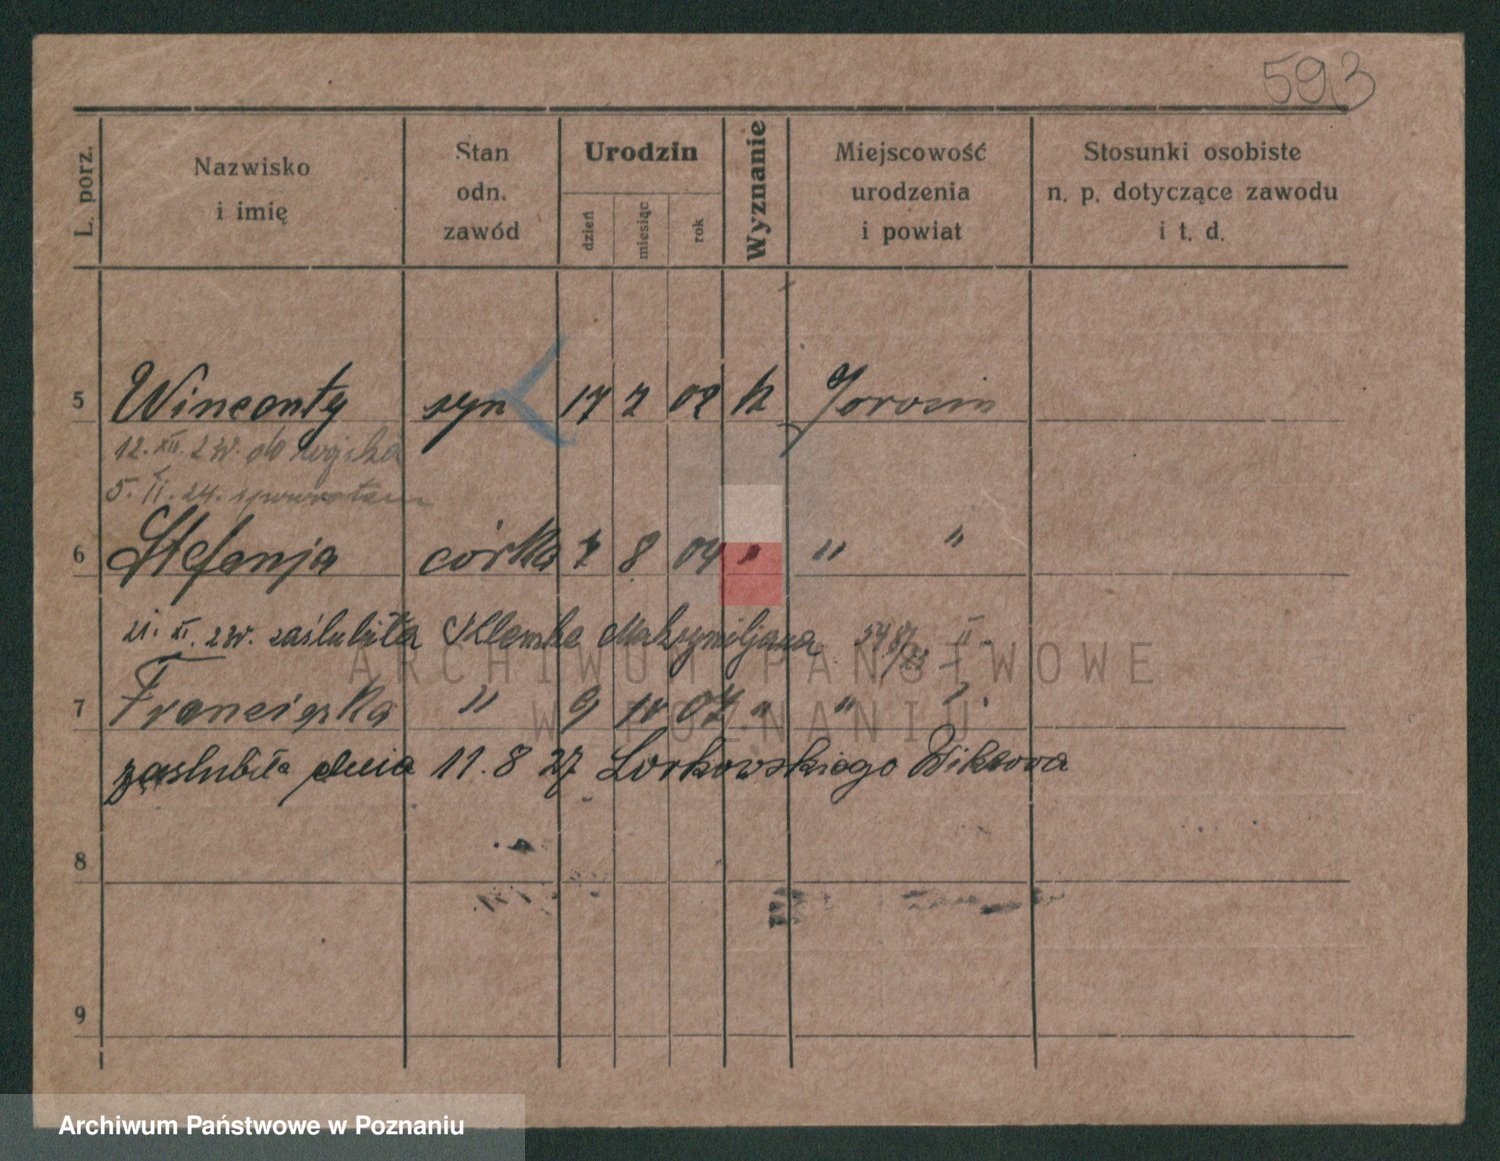 593
L. porz.
Nazwisko i imię
Stan odn. zawód
Urodzin
dzień
miesiąc
rok
Wyznanie
Miejscowość urodzenia i powiat
Stosunki osobiste n. p. dotyczące zawodu i t. d.
5 Winconty syn 17 7 02 k
12. XII. 23r. do wojska
5. II. 24. spowrotem
6 Stefanja córka 7 8 04 " " "
21. XI. 23r. zaślubiła Maksymiljana
7 Franciszka " 9 10 07 " " "
zaslubiła dnia 11.8 27 Lorkowskiego Wiktora
8
9
ARCHIWUM PAŃSTWOWE
W POZNANIU
Archiwum Państwowe w Poznaniu